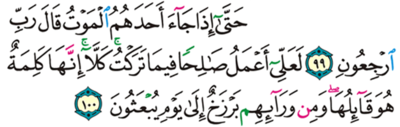 حَتَّىٰٓ إِذَا جَآءَ أَحَدَهُمُ ٱلْمَوْتُ قَالَ رَبِّ
ٱرْجِعُونِ ٩٩ لَعَلِّىٓ أَعْمَلُ صَٰلِحًا فِيمَا تَرَكْتُ ۚ كَلَّآ ۚ إِنَّهَا كَلِمَةٌ
هُوَ قَآئِلُهَا ۖ وَمِن وَرَآئِهِم بَرْزَخٌ إِلَىٰ يَوْمِ يُبْعَثُونَ ١٠٠